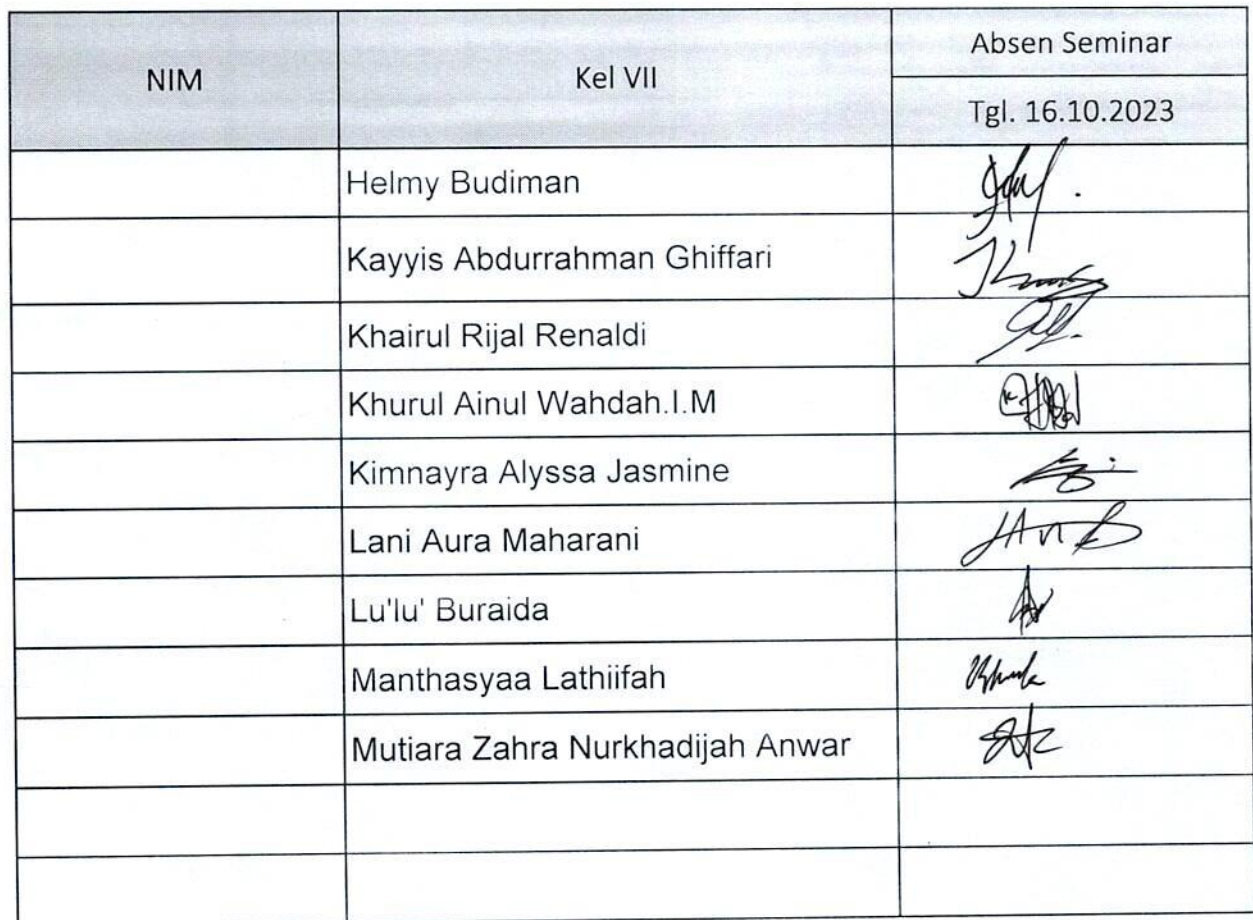 NIM
Kel VII
Absen Seminar
Tgl. 16.10.2023
Helmy Budiman
Kayyis Abdurrahman Ghiffari
Khairul Rijal Renaldi
Khurul Ainul Wahdah.I.M
Kimnayra Alyssa Jasmine
Lani Aura Maharani
Lu'lu' Buraida
Manthasyaa Lathiifah
Mutiara Zahra Nurkhadijah Anwar